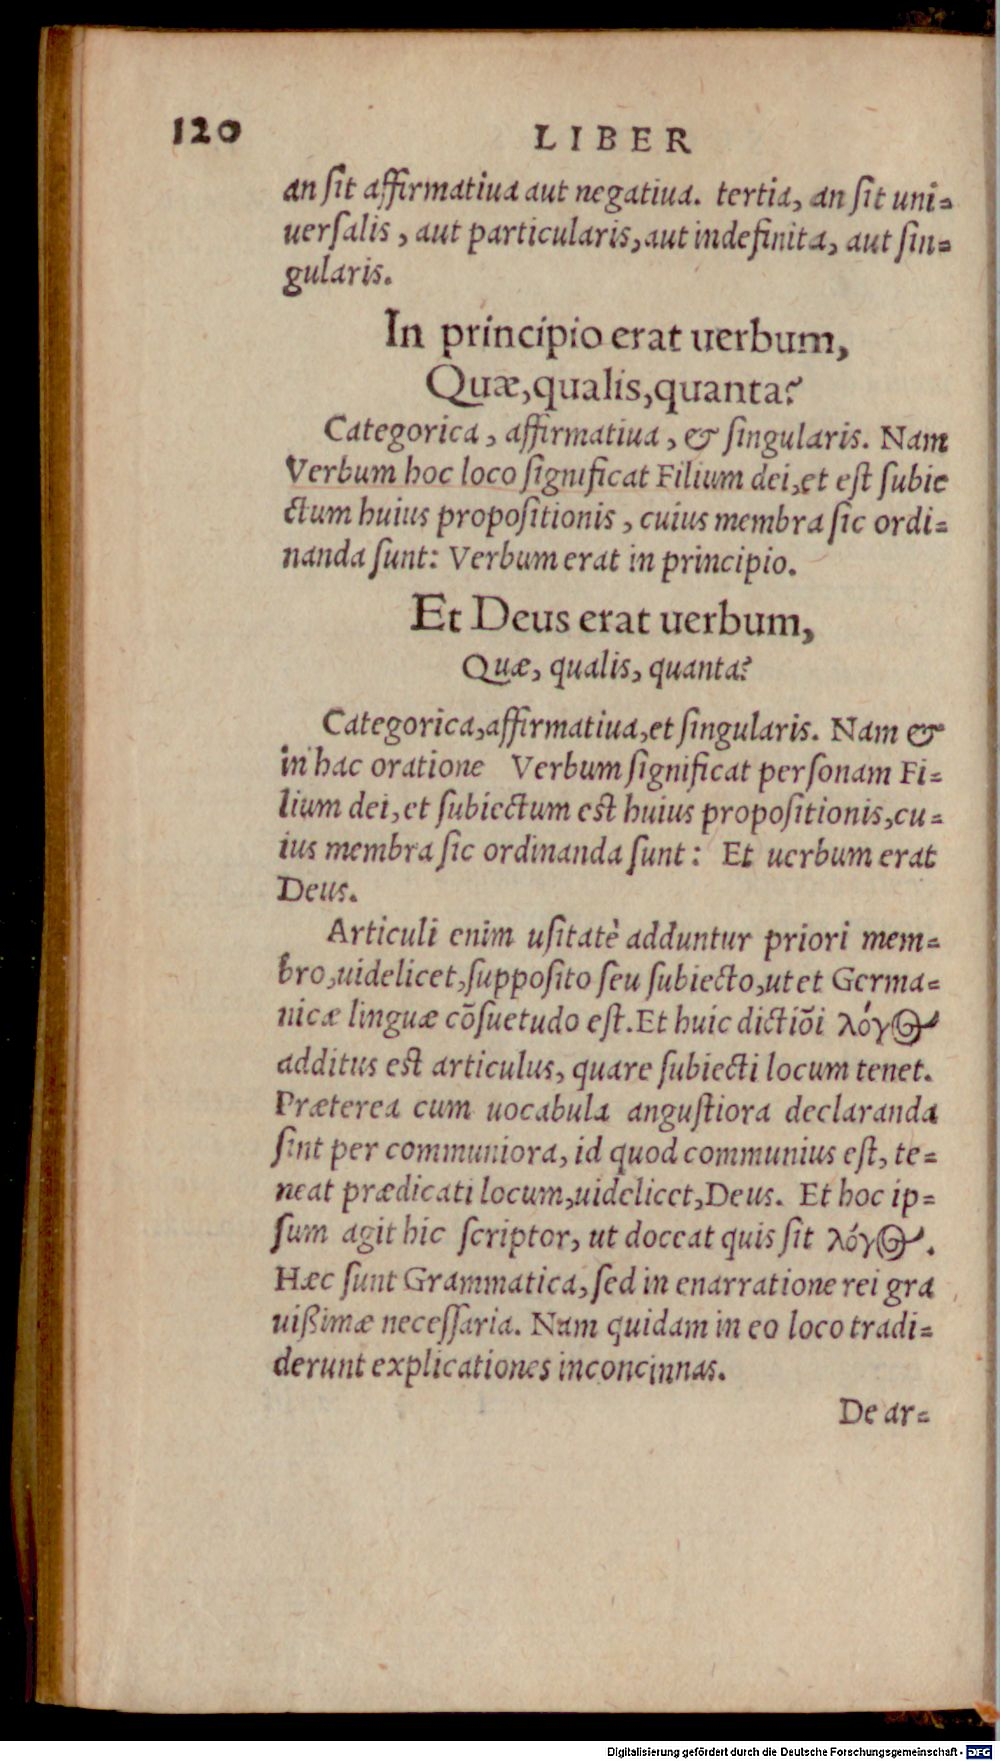 120 LIBER
an ſit affirmatiua aut negatiua. tertia, an ſit uni-
uerſalis, aut particularis, aut indefinita, aut ſin-
gularis.
In principio erat uerbum,
Quæ, qualis, quanta?
Categorica, affirmatiua, & ſingularis. Nam
Verbum hoc loco ſignificat Filium dei, et eſt ſubie
ctum huius propoſitionis, cuius membra ſic ordi-
nanda ſunt: Verbum erat in principio.
Et Deus erat uerbum,
Quæ, qualis, quanta?
Categorica, affirmatiua, et ſingularis. Nam &
in hac oratione Verbum ſignificat perſonam Fi-
lium dei, et ſubiectum est huius propoſitionis, cu-
ius membra ſic ordinanda ſunt: Et uerbum erat
Deus.
Articuli enim uſitatè adduntur priori mem-
bro, uidelicet, ſuppoſito ſeu ſubiecto, ut et Germa-
nicæ linguæ cõſuetudo eſt. Et huic dictiõi λόγος
additus est articulus, quare ſubiecti locum tenet.
Præterea cum uocabula anguſtiora declaranda
ſint per communiora, id quod communius eſt, te-
neat prædicati locum, uidelicet, Deus. Et hoc ip-
ſum agit hic ſcriptor, ut doceat quis ſit λόγος.
Hæc ſunt Grammatica, ſed in enarratione rei gra
uißimæ neceſſaria. Nam quidam in eo loco tradi-
derunt explicationes inconcinnas.
De ar-
Digitalisierung gefördert durch die Deutsche Forschungsgemeinschaft - DFG